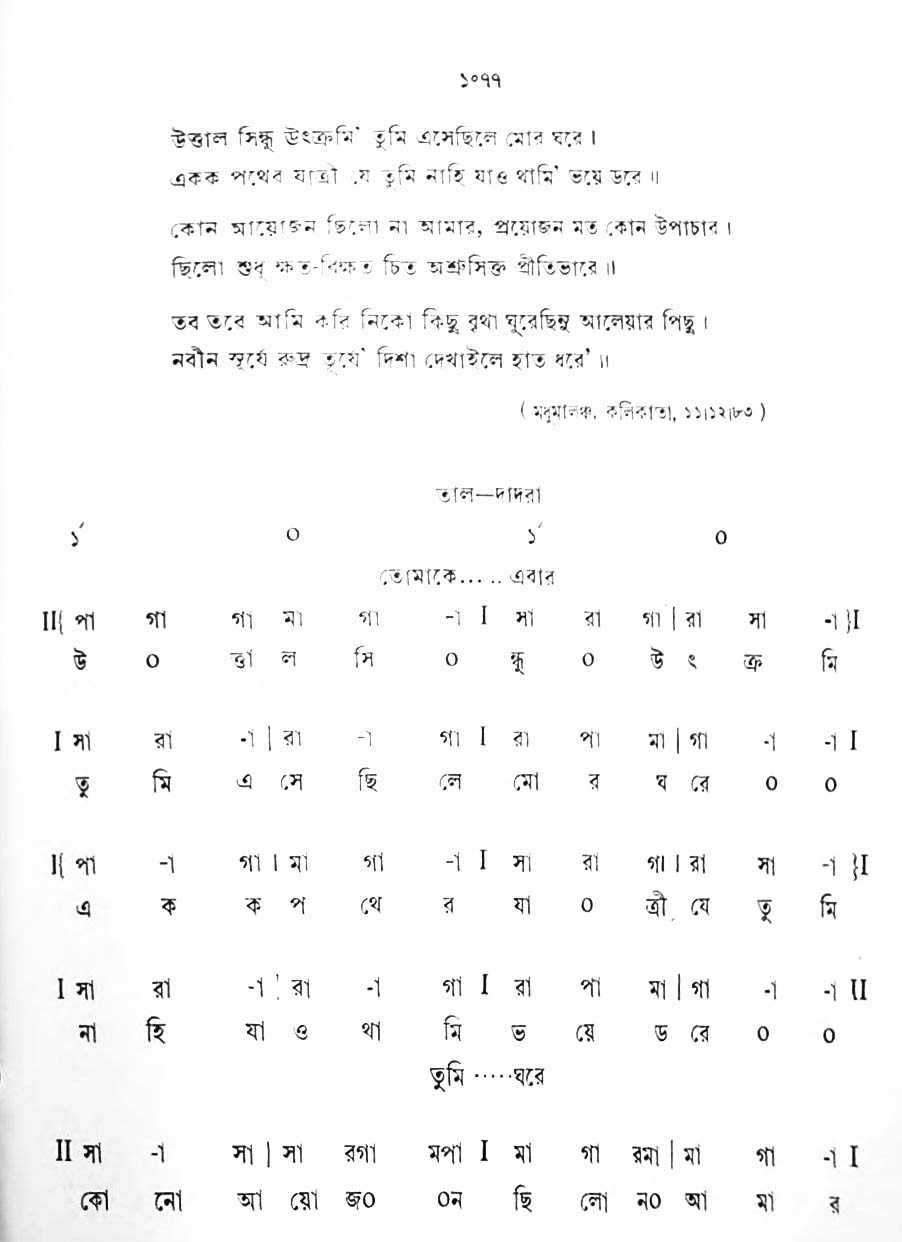 ১০৭৭
উত্তাল সিন্ধু উৎক্রমি' তুমি এসেছিলে মোর ঘরে।
একক পথের যাত্রী যে তুমি নাহি যাও থামি' ভয়ে ডরে॥
কোন আয়োজন ছিলো না আমার, প্রয়োজন মত কোন উপাচার।
ছিলো শুধু ক্ষত-বিক্ষত চিত অশ্রুসিক্ত প্রীতিভারে॥
তব তরে আমি করি নিকো কিছু বৃথা ঘুরেছিনু আলেয়ার পিছু।
নবীন সূর্যে রুদ্র তূর্যে' দিশা দেখাইলে হাত ধরে'॥
( মধুমালঞ্চ, কলিকাতা, ১১।১২।৮৩ )
তাল—দাদরা
১´ ০ ১´ ০
তোমাকে..... এবার
II{ পা গা গা মা গা -া I সা রা গা | রা সা -া }I
উ ০ ত্তা ল সি ০ ন্ধু ০ উ ৎ ক্র মি
I সা রা -া | রা -া গা I রা পা মা | গা -া -া I
তু মি এ সে ছি লে মো র ঘ রে ০ ০
I{ পা -া গা । মা গা -া I সা রা গা । রা সা -া }I
এ ক ক প থে র যা ০ ত্রী যে তু মি
I সা রা -া | রা -া গা I রা পা মা | গা -া -া II
না হি যা ও থা মি ভ য়ে ড রে ০ ০
তুমি .....ঘরে
II সা -া সা | সা রগা মপা I মা গা রমা | মা গা -া I
কো নো আ য়ো জ০ ০ন ছি লো ন০ আ মা র